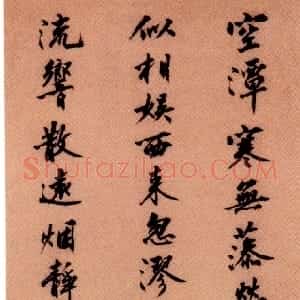 空潭寒無藻
似相娛西来忽漻
流響散遠烟靜
Shufaziliao.com